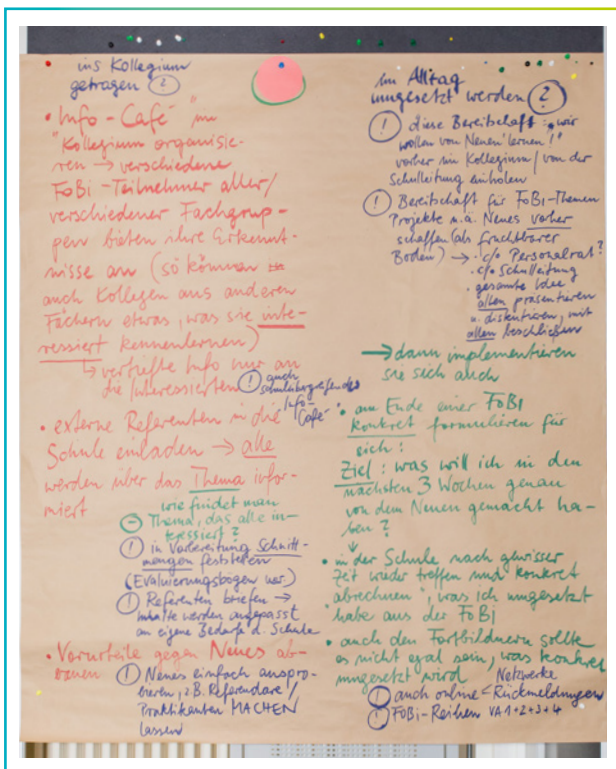 ins Kollegium
getragen ?
• "Info-Café" im
Kollegium organisie-
ren → verschiedene
FoBi-Teilnehmer aller/
verschiedener Fachgrup-
pen bieten ihre Erkennt-
nisse an (so können
auch Kollegen aus anderen
Fächern etwas, was sie inte-
ressiert kennenlernen)
↳ vertiefte Info nur an
die Interessierten
! auch
schulübergreifendes
Info-
Café
• externe Referenten in die
Schule einladen → alle
werden über das Thema infor-
miert
wie findet man
Thema, das alle in-
teressiert?
! in Vorbereitung Schnitt-
mengen feststellen
(Evaluierungsbogen vor)
! Referenten briefen →
Inhalte werden angepasst
an eigene Bedarfe d. Schule
• Vorurteile gegen Neues ab-
bauen
! Neues einfach auspro-
bieren, z.B. Referendare/
Praktikanten MACHEN
lassen
im Alltag
umgesetzt werden ?
! diese Bereitschaft: "wir
wollen von Neuen lernen!"
vorher im Kollegium/von der
Schulleitung einholen
! Bereitschaft für FoBi-Themen
Projekte u.ä. Neues vorher
schaffen (als fruchtbarer
Boden) → • c/o Personalrat?
• c/o Schulleitung
• gesamte Idee
allen präsentieren
u. diskutieren, mit
allen beschließen
→ dann implementieren
sie sich auch
• am Ende einer FoBi
konkret formulieren für
sich:
Ziel: was will ich in den
nächsten 3 Wochen genau
von dem Neuen gemacht ha-
ben?
↓
• in der Schule nach gewisser
Zeit wieder treffen und "konkret
abrechnen", was ich umgesetzt
habe aus der FoBi
• auch den Fortbildnern sollte
es nicht egal sein, was konkret
umgesetzt wird
! auch online < Netzwerke
Rückmeldungen
! FoBi-Reihen VA 1+2+3+4